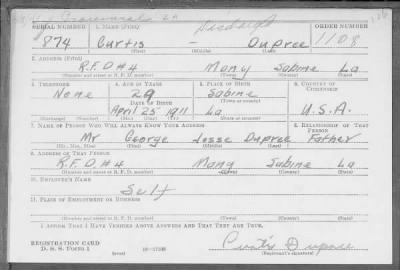 SERIAL NUMBER 1. NAME (Print) ORDER NUMBER
874 Curtis - Dupree 1108
(First) (Middle) (Last)
2. ADDRESS (Print)
R.F.D #4 Many Sabine La
(Number and street or R. F. D. number) (Town) (County) (State)
3. TELEPHONE 4. AGE IN YEARS 5. PLACE OF BIRTH 6. COUNTRY OF CITIZENSHIP
None 29 Sabine
DATE OF BIRTH (Town or county)
April 25 1911 La U.S.A.
(Exchange) (Number) (Mo.) (Day) (Yr.) (State or country)
7. NAME OF PERSON WHO WILL ALWAYS KNOW YOUR ADDRESS 8. RELATIONSHIP OF THAT PERSON
Mr George Jesse Dupree Father
(Mr., Mrs., Miss) (First) (Middle) (Last)
9. ADDRESS OF THAT PERSON
R.F.D #4 Many Sabine La
(Number and street or R. F. D. number) (Town) (County) (State)
10. EMPLOYER'S NAME
Self
11. PLACE OF EMPLOYMENT OR BUSINESS
(Number and street or R. F. D. number) (Town) (County) (State)
I AFFIRM THAT I HAVE VERIFIED ABOVE ANSWERS AND THAT THEY ARE TRUE.
REGISTRATION CARD
D. S. S. FORM 1 (over) Curtis Dupree
(Registrant's signature)